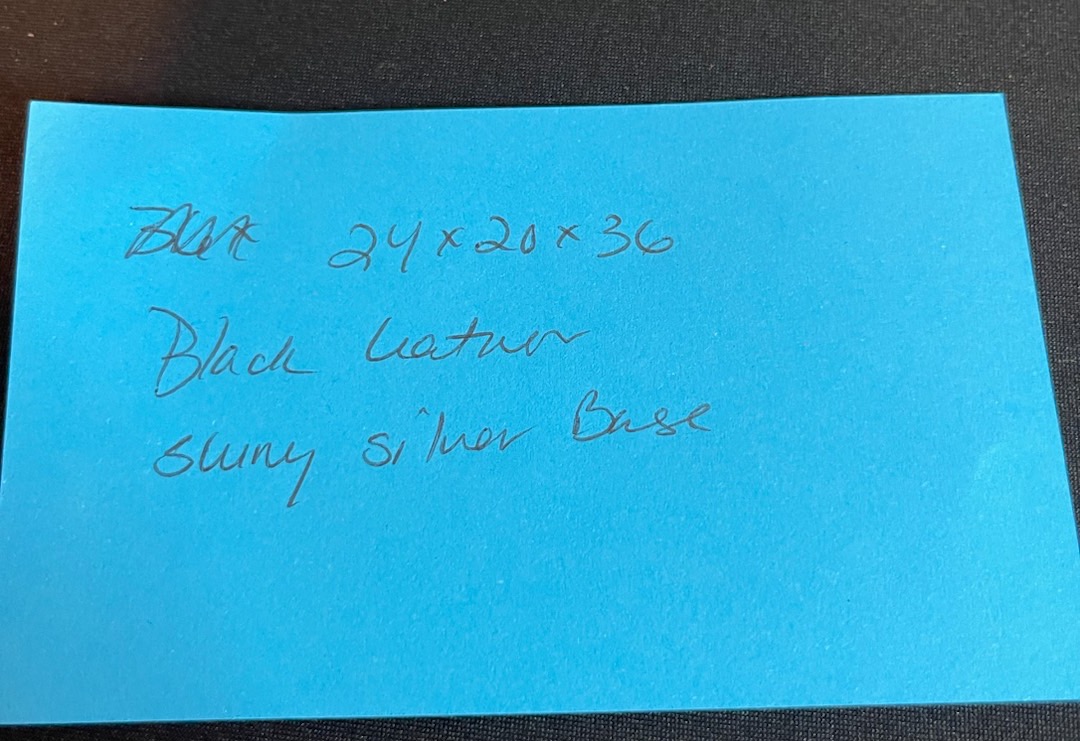 24 x 20 x 36
Black leather
shiny silver Base